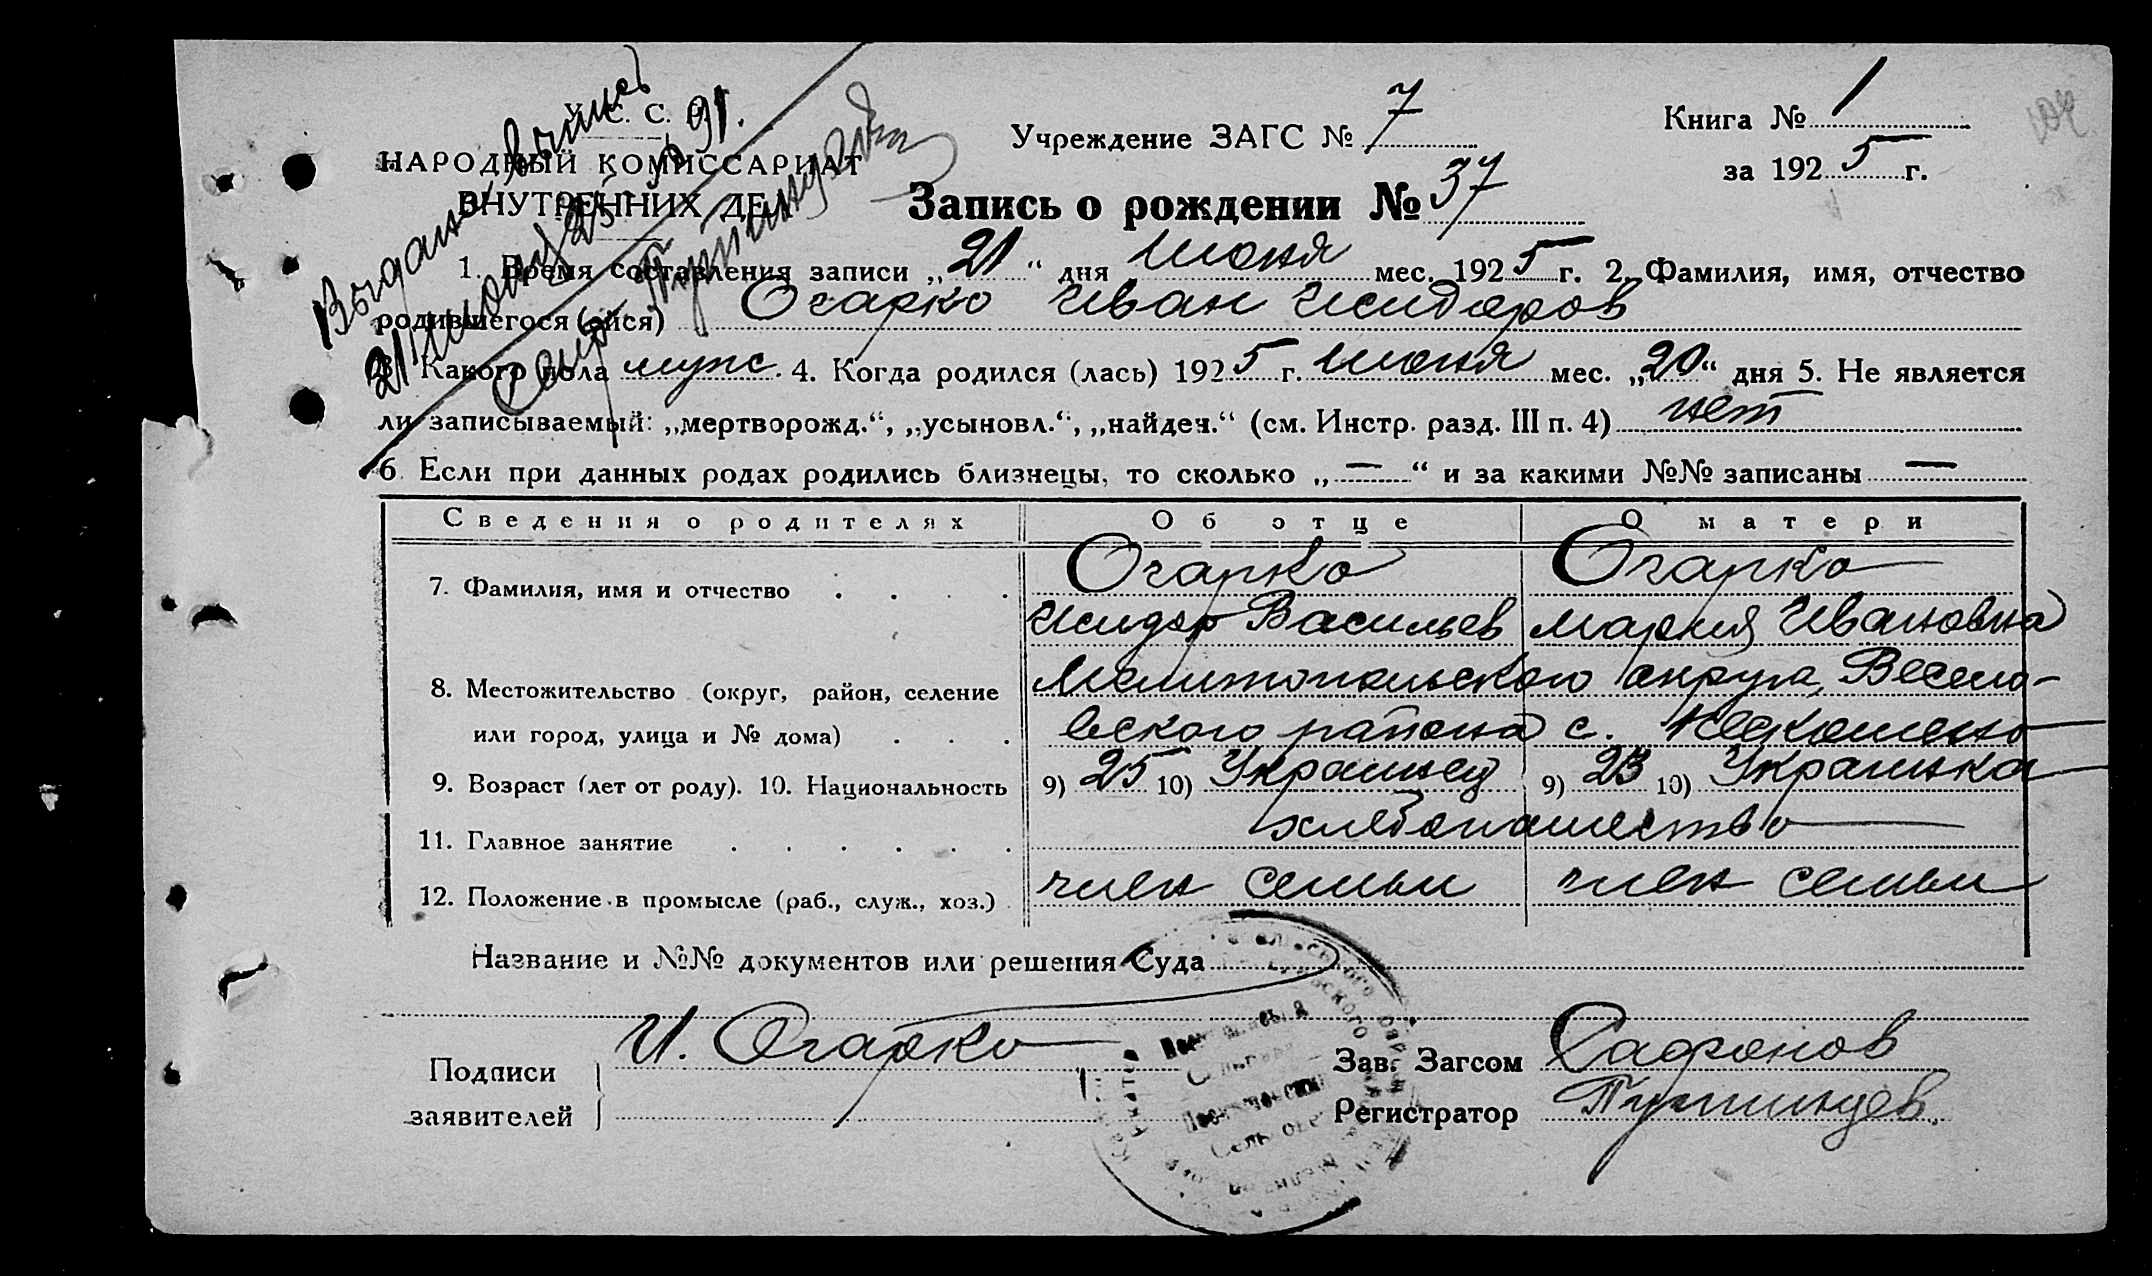 У. С. С. Р.
НАРОДНЫЙ КОМИССАРИАТ
ВНУТРЕННИХ ДЕЛ
Выдана выпись
21 июня 25 г. № 91.
Учреждение ЗАГС № 7
Книга № 1
за 1925 г.
Запись о рождении № 37
1. Время составления записи „21“ дня июня мес. 1925 г. 2. Фамилия, имя, отчество
родившегося (ейся) Огарко Иван Исидоров
3. Какого пола муж. 4. Когда родился (лась) 1925 г. июня мес. „20“ дня 5. Не является
ли записываемый: „мертворожд.“, „усыновл.“, „найден.“ (см. Инстр. разд. III п. 4) нет
6. Если при данных родах родились близнецы, то сколько „—“ и за какими №№ записаны —
Сведения о родителях Об отце О матери
7. Фамилия, имя и отчество . . . . Огарко Огарко
Исидор Васильев Мария Ивановна
8. Местожительство (округ, район, селение Мелитопольского округа, Весело-
или город, улица и № дома) . . . вского района с.
9. Возраст (лет от роду). 10. Национальность 9) 25 10) Украинец 9) 23 10) Украинка
11. Главное занятие . . . . . . хлебопашество
12. Положение в промысле (раб., служ., хоз.) член семьи член семьи
Название и №№ документов или решения Суда
Подписи заявителей И. Огарко
Зав. Загсом Сафонов
Регистратор